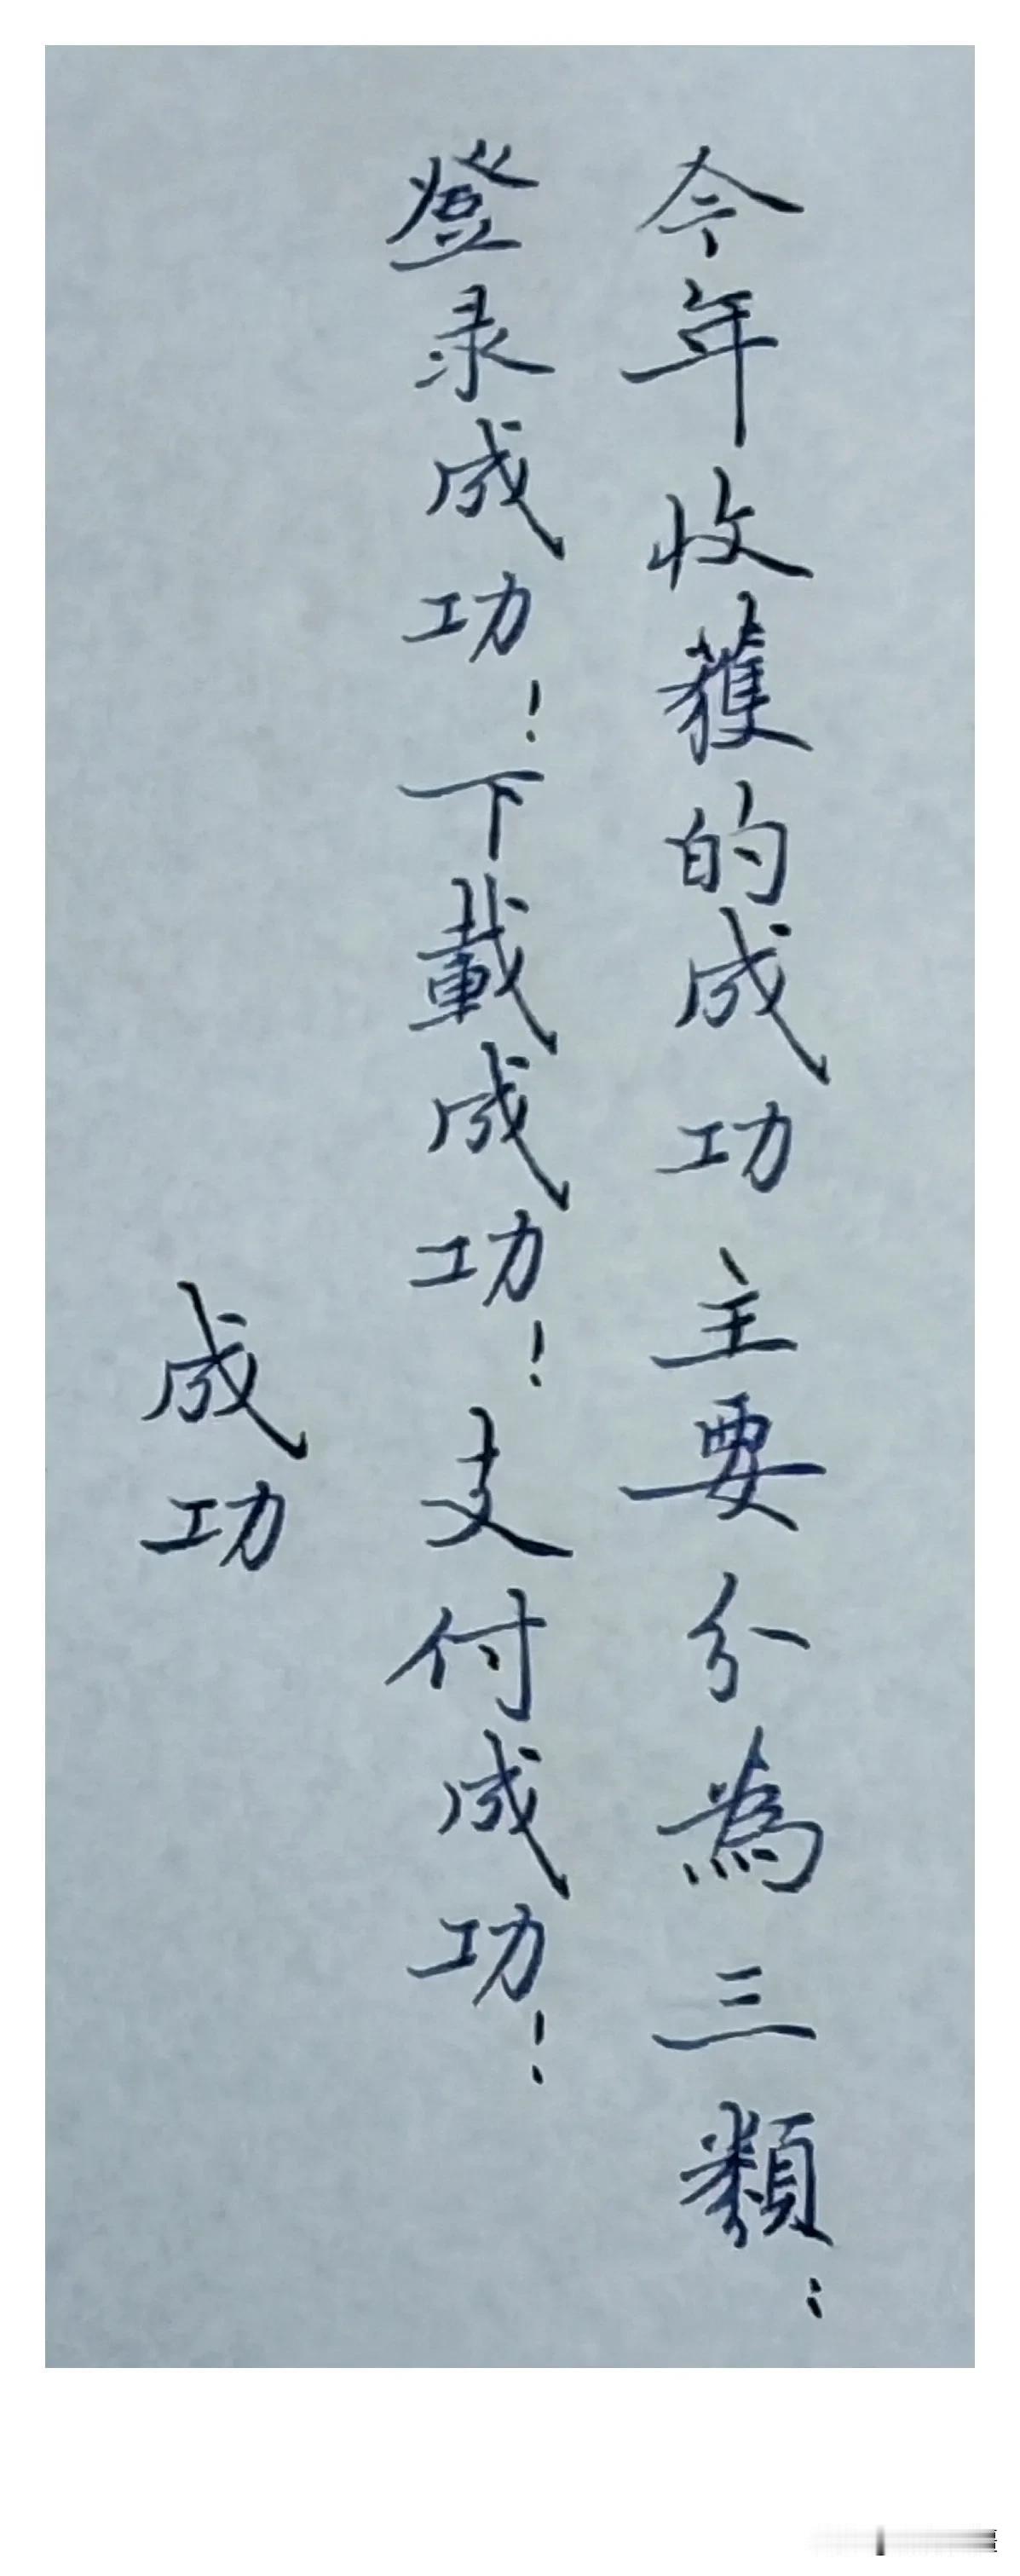 今年收獲的成功主要分為三類：
登录成功！下載成功！支付成功！
成功